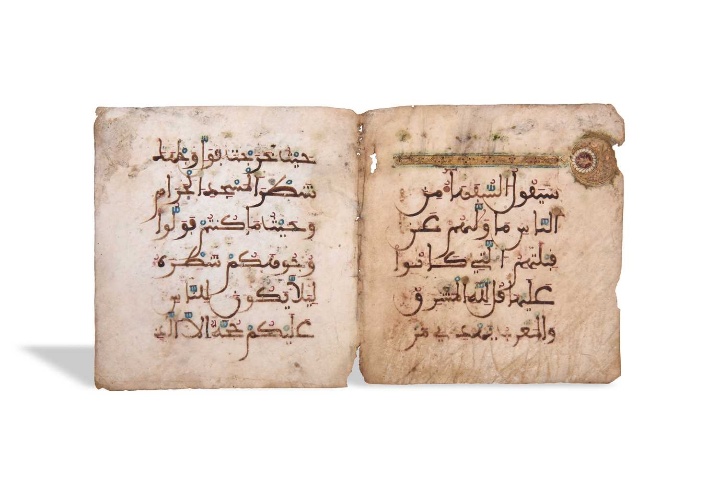 سيقول السفهاء من
الناس ما وليهم عن
قبلتهم التي كانوا
عليها قل لله المشرق
والمغرب يهدي من
حيث خرجت فول وجهك
شطر المسجد الحرام
وحيث ما كنتم فولوا
وجوهكم شطره
ليلا يكون للناس
عليكم حجة الا